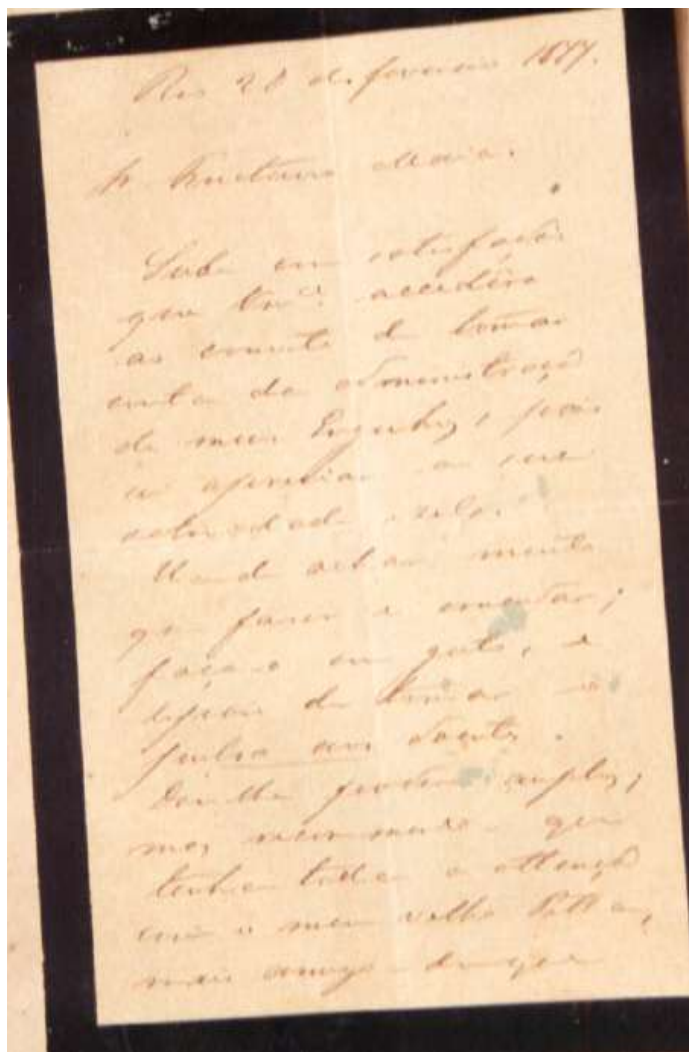 Rio 28 de fevereiro 1877.
Sr. Maia.
Soube com satisfação
que accedêra
ao convite de tomar
conta da administração
do meu Engenho, pois
sei apreciar a sua
actividade e zelo.
Ha de achar muito
que fazer e emendar;
faça-o com geito, e
depois de tomar o
pulso aos doentes.
Dou-lhe poderes amplos,
mas recommendo que
tenha toda a attenção
com o meu velho
mais amigo do que